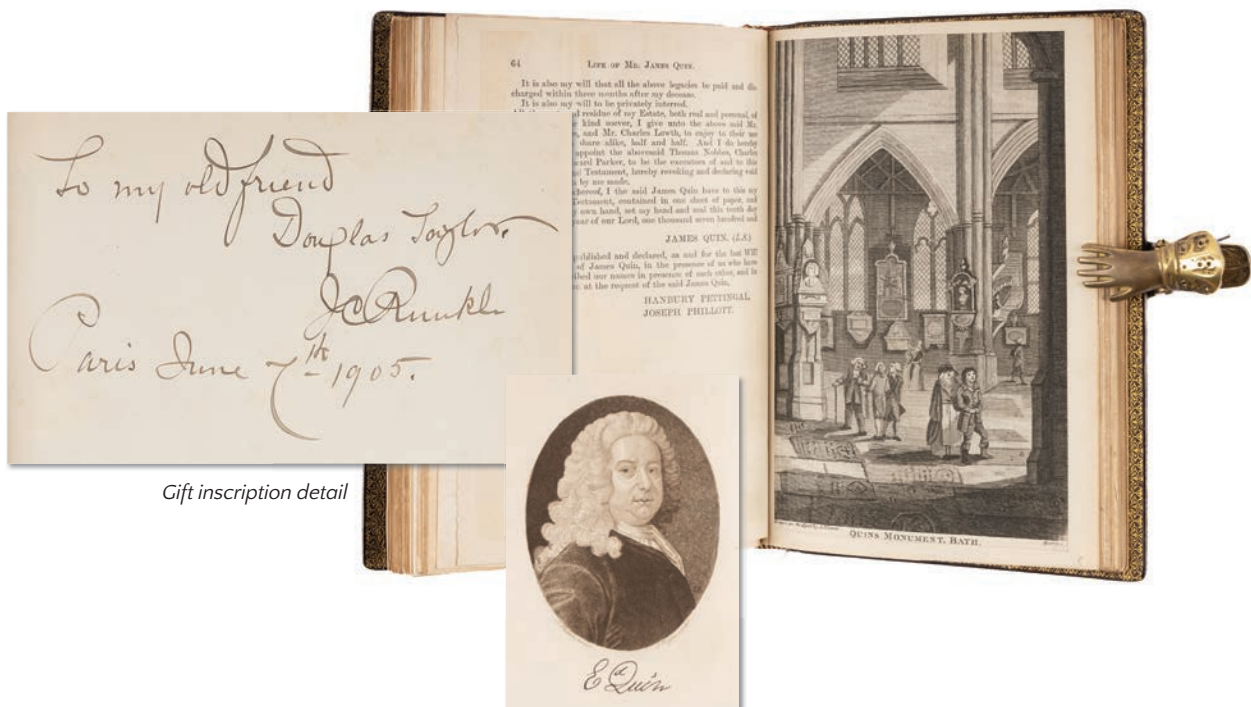 To my old friend
Douglas Taylor.
JC Runkle
Paris June 7th 1905.
Gift inscription detail
64 LIFE OF MR. JAMES QUIN.
It is also my will that all the above legacies be paid and dis
charged within three months after my decease.
It is also my will to be privately interred.
residue of my Estate, both real and personal, of
kind soever, I give unto the above said Mr.
and Mr. Charles Lowth, to enjoy to their use
share alike, half and half. And I do hereby
appoint the aforesaid Thomas Nobbes, Charles
Parker, to be the executors of and to this
Testament, hereby revoking and declaring void
by me made.
I the said James Quin have to this my
Testament, contained in one sheet of paper, and
own hand, set my hand and seal this tenth day
year of our Lord, one thousand seven hundred and
JAMES QUIN. (L.S.)
published and declared, as and for the last Will
of James Quin, in the presence of us who have
our names in presence of each other, and in
at the request of the said James Quin,
HANBURY PETTINGAL
JOSEPH PHILLOTT.
QUINS MONUMENT, BATH.
Ed Quin